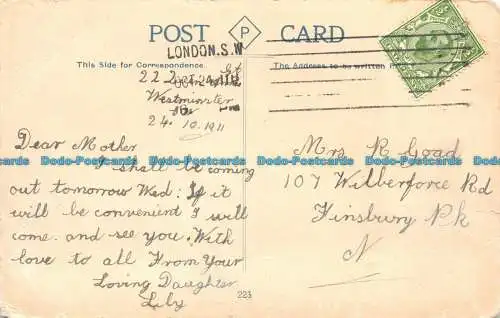 POST P CARD
LONDON.S.W
This Side for Correspondence.
The Address to be written
222 St
OCT 24 11
Westminster
SW
24. 10. 1911
Dear Mother
I shall be coming
out tomorrow Wed: If it
will be convenient I will
come and see you. With
love to all From Your
Loving Daughter
Lily
Mrs R Goad
107 Wilberforce Rd
Finsbury Pk
N
223
Dodo-Postcards Dodo-Postcards Dodo-Postcards Dodo-Postcards Dodo-Postcards